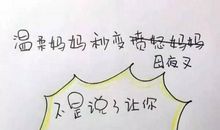 温柔妈妈秒变愤怒妈妈
母夜叉
不是说了让你